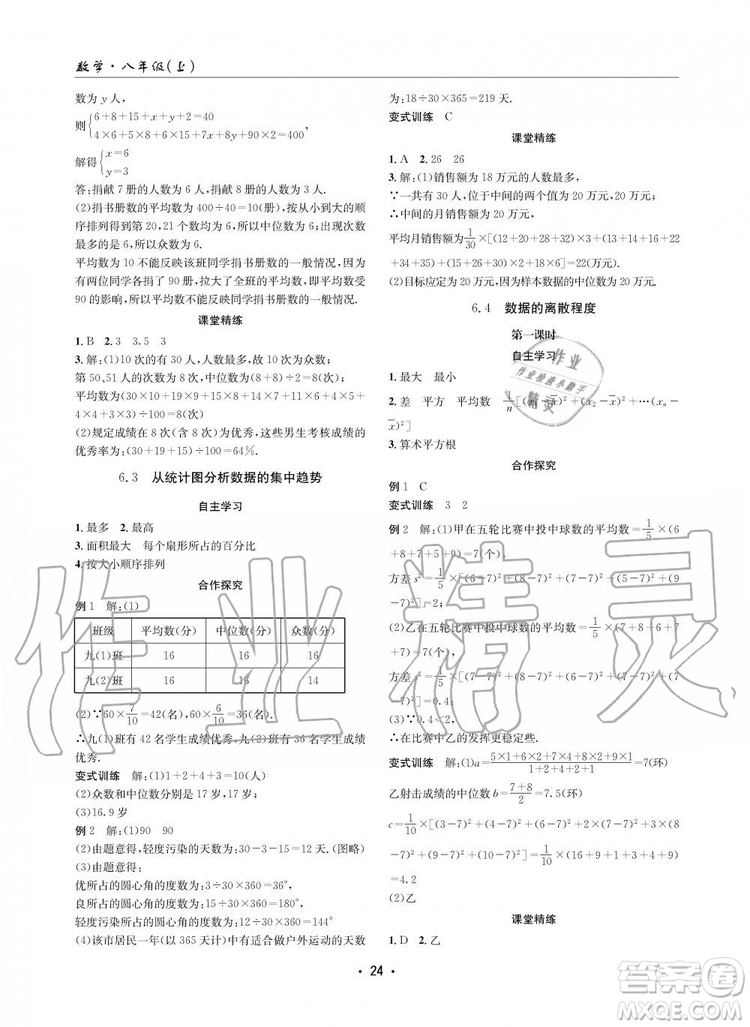 数学·八年级(上)
数为y人,
则{6+8+15+x+y+2=40
4×6+5×8+6×15+7x+8y+90×2=400
解得{x=6
y=3
答:捐献7册的人数为6人,捐献8册的人数为3人.
(2)捐书册数的平均数为400÷40=10(册),按从小到大的顺
序排列得到第20,21个数均为6,所以中位数为6;出现次数
最多的是6,所以众数为6.
平均数为10不能反映该班同学捐书册数的一般情况,因
为有两位同学各捐了90册,拉大了全班的平均数,即平均数受
90的影响,所以平均数不能反映该班同学捐书册数的一般情况.
课堂精练
1. B 2. 3 3.5 3
3. 解:(1)10次的有30人,人数最多,故众数为10次;
第50,51人的次数为8次,故中位数为(8+8)÷2=8(次);
平均数为(10×30+9×15+8×15+7×15+6×12+5×5+4
×4+3×4)÷100=7.85(次)
(2)规定成绩在8次(含8次)为优秀,这批男生考试成绩的优
6.3 从统计图分析数据的集中趋势
自主学习
1. 最多 2. 最高
3. 面积最大 每个扇形所占的百分比
4. 按大小顺序排列
合作探究
例1 解:(1)
班级 平均数(分) 中位数(分) 众数(分)
九(1)班 16 16 16
九(2)班 16 16 14
(2)∵60×7/10=42(名),60×6/10=36(名).
∴九(1)班有42名学生成绩优秀,九(2)班有36名学生成绩
优秀.
变式训练 解:(1)1+2+4+3=10(人)
(2)众数和中位数分别是17岁,17岁.
(3)16.9岁
例2 解:(1)90 90
(2)由题意得,轻度污染的天数为:30-3-15=12天.(图略)
(3)由题意得:
优所占的圆心角的度数为:3÷30×360°=36°
良所占的圆心角的度数为:15÷30×360°=180°
轻度污染所占的圆心角的度数为:12÷30×360°=144°
(4)该市居民一年(以365天计)中有适合做户外运动的天数
为:18÷30×365=219天.
变式训练 C
课堂精练
1. A 2. 26 26
3. 解:(1)销售额为18万元的人数最多,
∵一共有30人,位于中间的两个值为20万元,20万元;
∴中间的月销售额为20万元,
(2)目标应定为20万元,因为样本数据的中位数为20万元.
6.4 数据的离散程度
第一课时
自主学习
1. 最大 最小
2. 差 平方 平均数 1/n[(x₁-x̄)²+(x₂-x̄)²+…(xₙ-
x̄)²]
3. 算术平方根
合作探究
例1 C
变式训练 3 2
例2 解:(1)甲在五轮比赛中投中球数的平均数=1/5×(6
+8+7+5+9)=7(个),
(2)乙在五轮比赛中投中球数的平均数=1/5×(7+8+6+
7+7)=7(个),
(3)∵0.4<2,
∴在比赛中乙的发挥更稳定.
变式训练 解:(1)a=(5×1+6×2+7×4+8×2+9×1)/(1+2+4+2+1)=7(环)
乙射击成绩的中位数b=(7+8)/2=7.5(环)
c=1/10×[(3-7)²+(4-7)²+(6-7)²+(7-7)²+(8-7)²
=4.2
(2)乙
课堂精练
1. D 2. 乙
· 24 ·
作业
作业检查小助手
精灵
作业精灵
答案圈
MXQE.COM